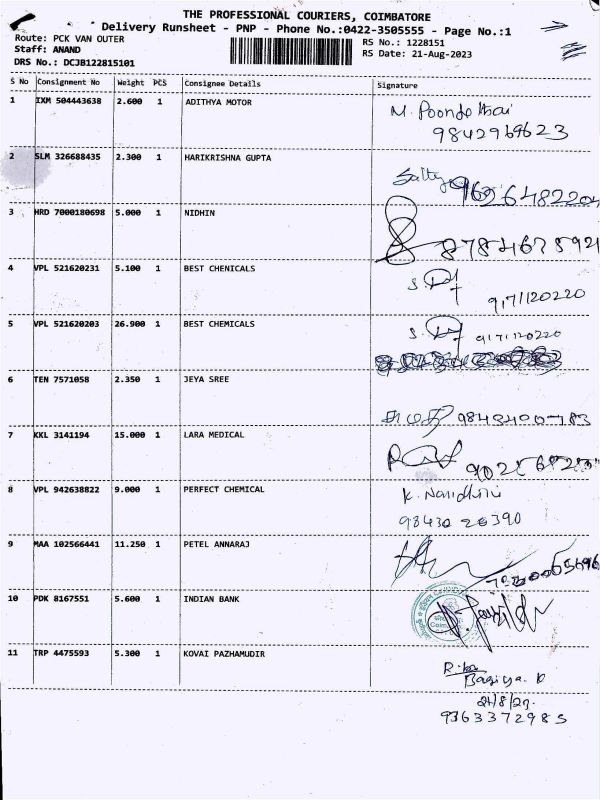 THE PROFESSIONAL COURIERS, COIMBATORE
Delivery Runsheet - PNP - Phone No.:0422-3505555 - Page No.:1
Route: PCK VAN OUTER
RS No.: 1228151
Staff: ANAND
RS Date: 21-Aug-2023
DRS No.: DCJB122815101
S No Consignment No Weight PCS Consignee Details Signature
1 IXM 504443638 2.600 1 ADITHYA MOTOR
M. Poondethai
9842969623
2 SLM 326688435 2.300 1 HARIKRISHNA GUPTA
9626482204
3 HRD 7000180698 5.000 1 NIDHIN
8784675921
4 VPL 521620231 5.100 1 BEST CHENICALS
9171120220
5 VPL 521620203 26.900 1 BEST CHEMICALS
9171120220
6 TEN 7571058 2.350 1 JEYA SREE
7 KKL 3141194 15.000 1 LARA MEDICAL
8 VPL 942638822 9.000 1 PERFECT CHEMICAL
K. Nandhini
98430 26390
9 MAA 102566441 11.250 1 PETEL ANNARAJ
10 PDK 8167551 5.600 1 INDIAN BANK
11 TRP 4475593 5.300 1 KOVAI PAZHAMUDIR
9363372985